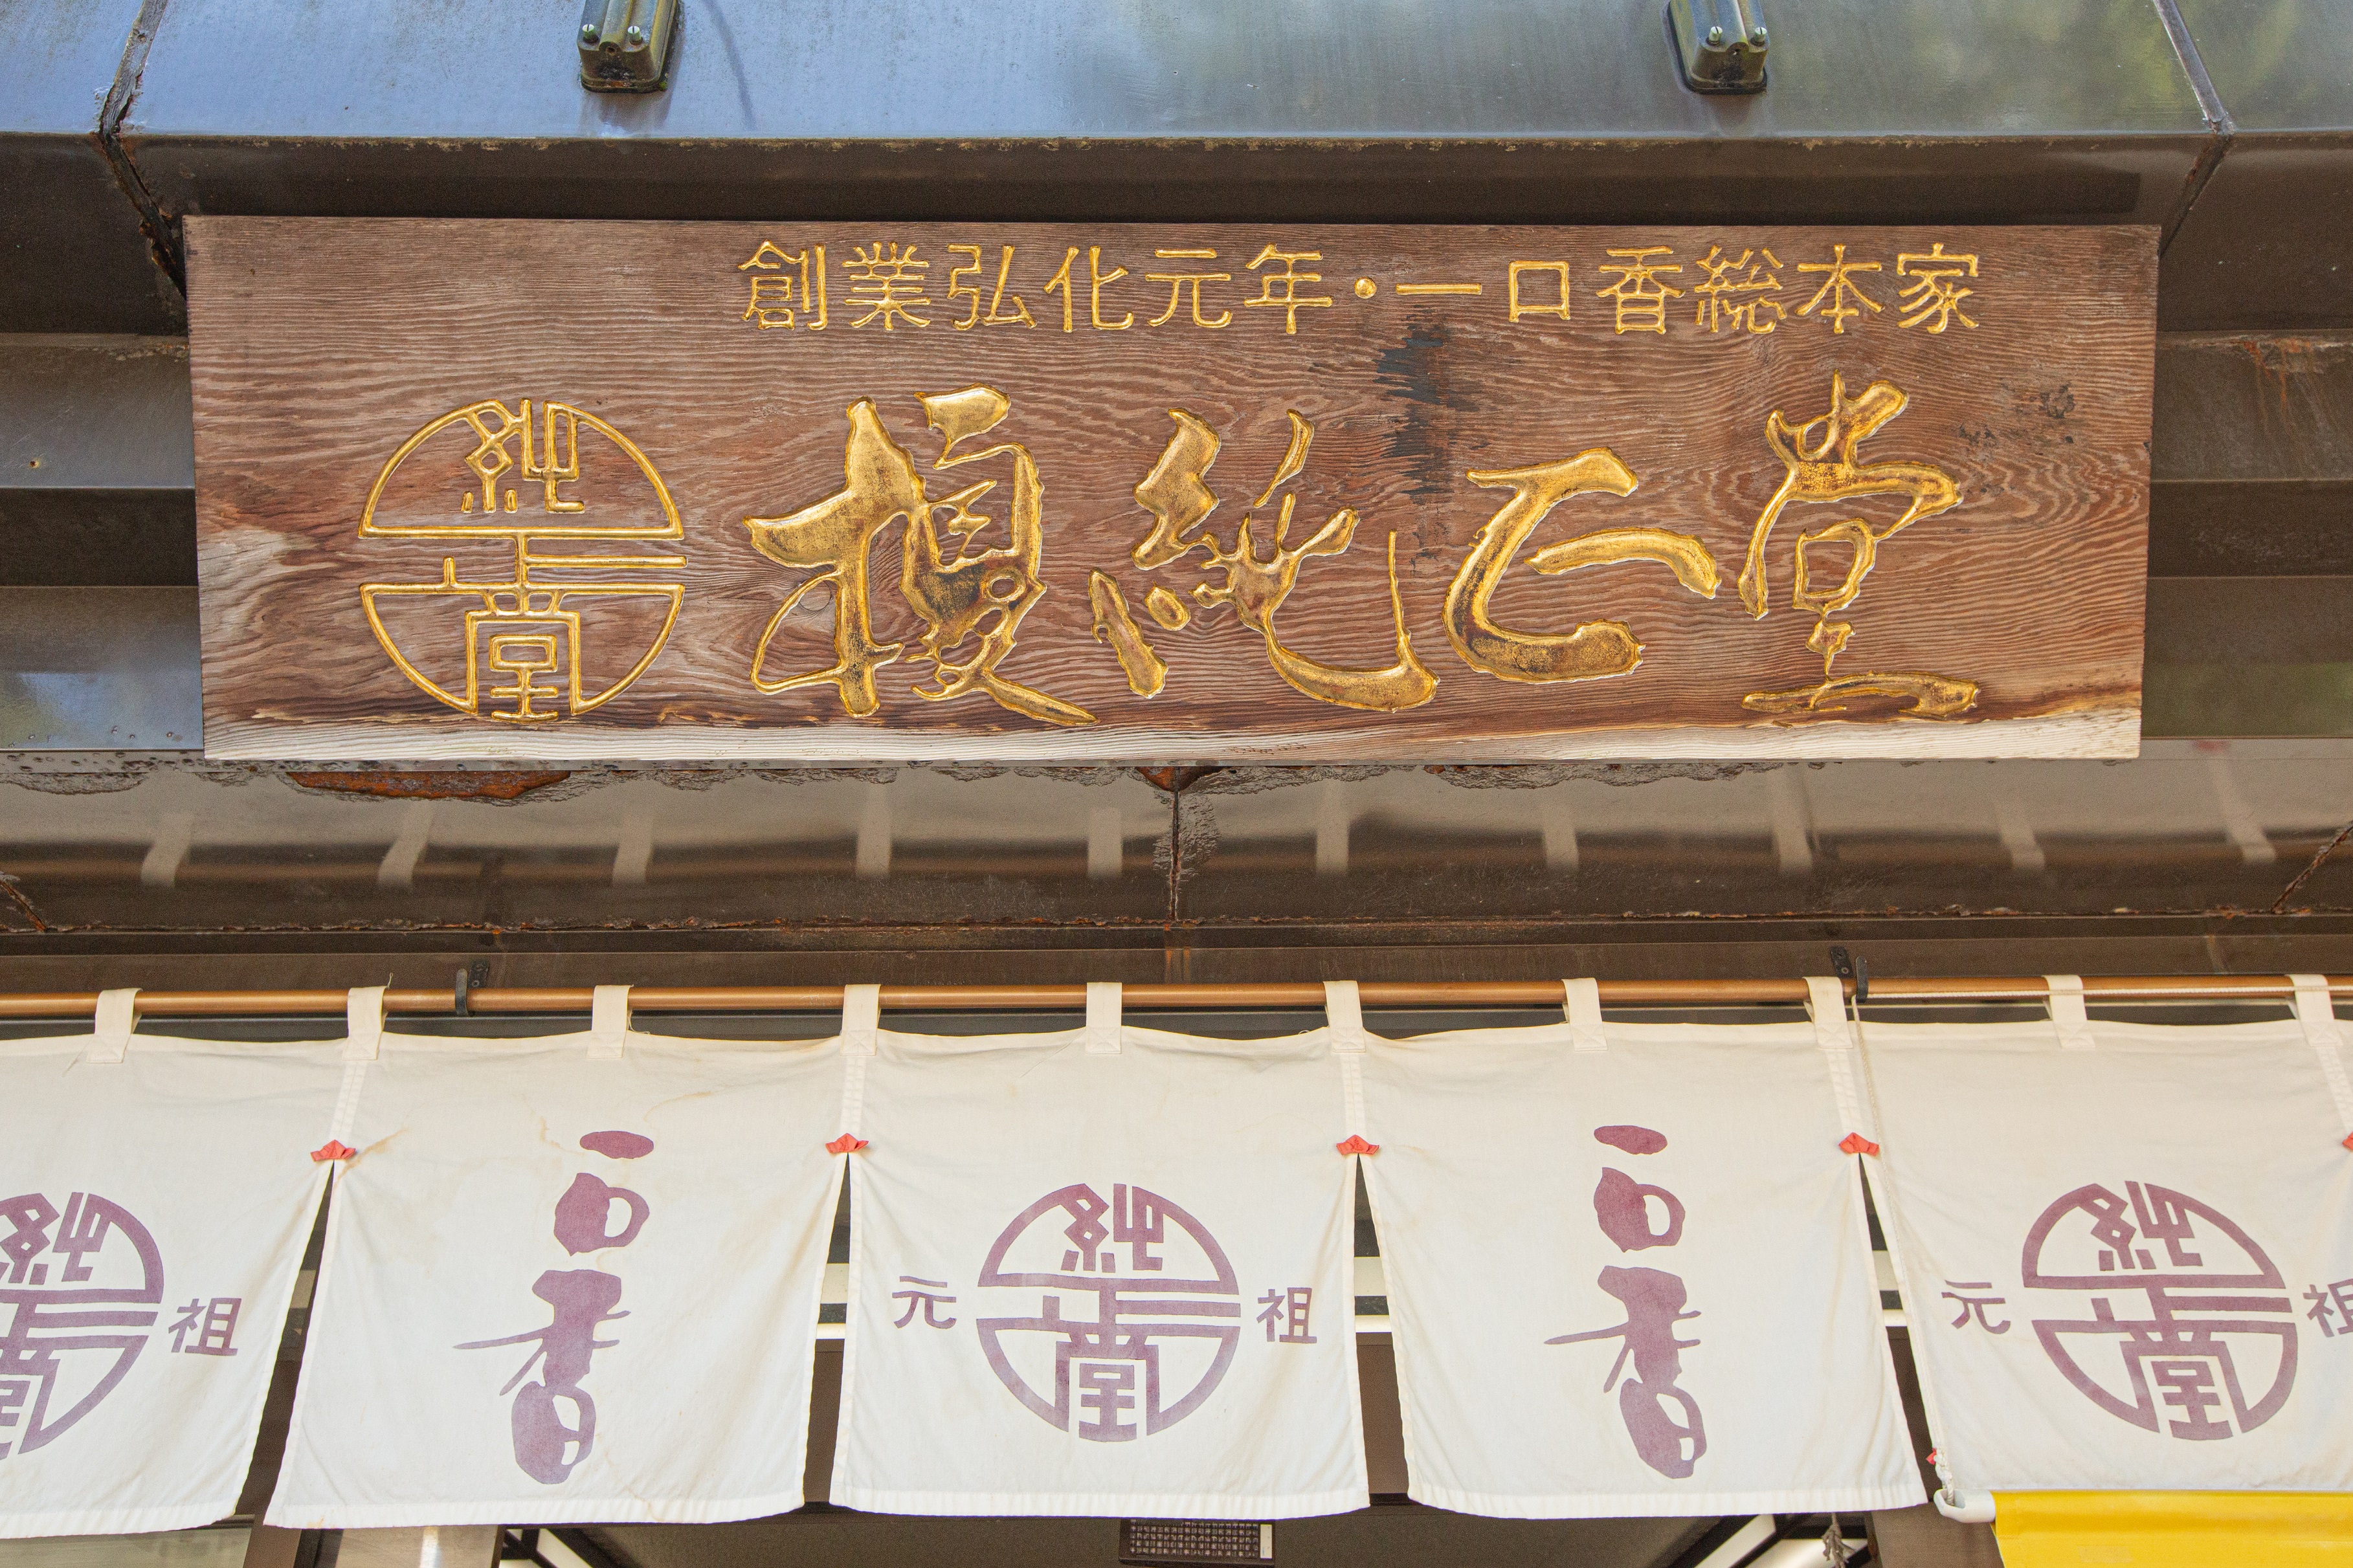 創業弘化元年・一口香総本家
純正堂
榎純正堂
純正堂 祖
一口香
元 純正堂 祖
一口香
元 純正堂 祖